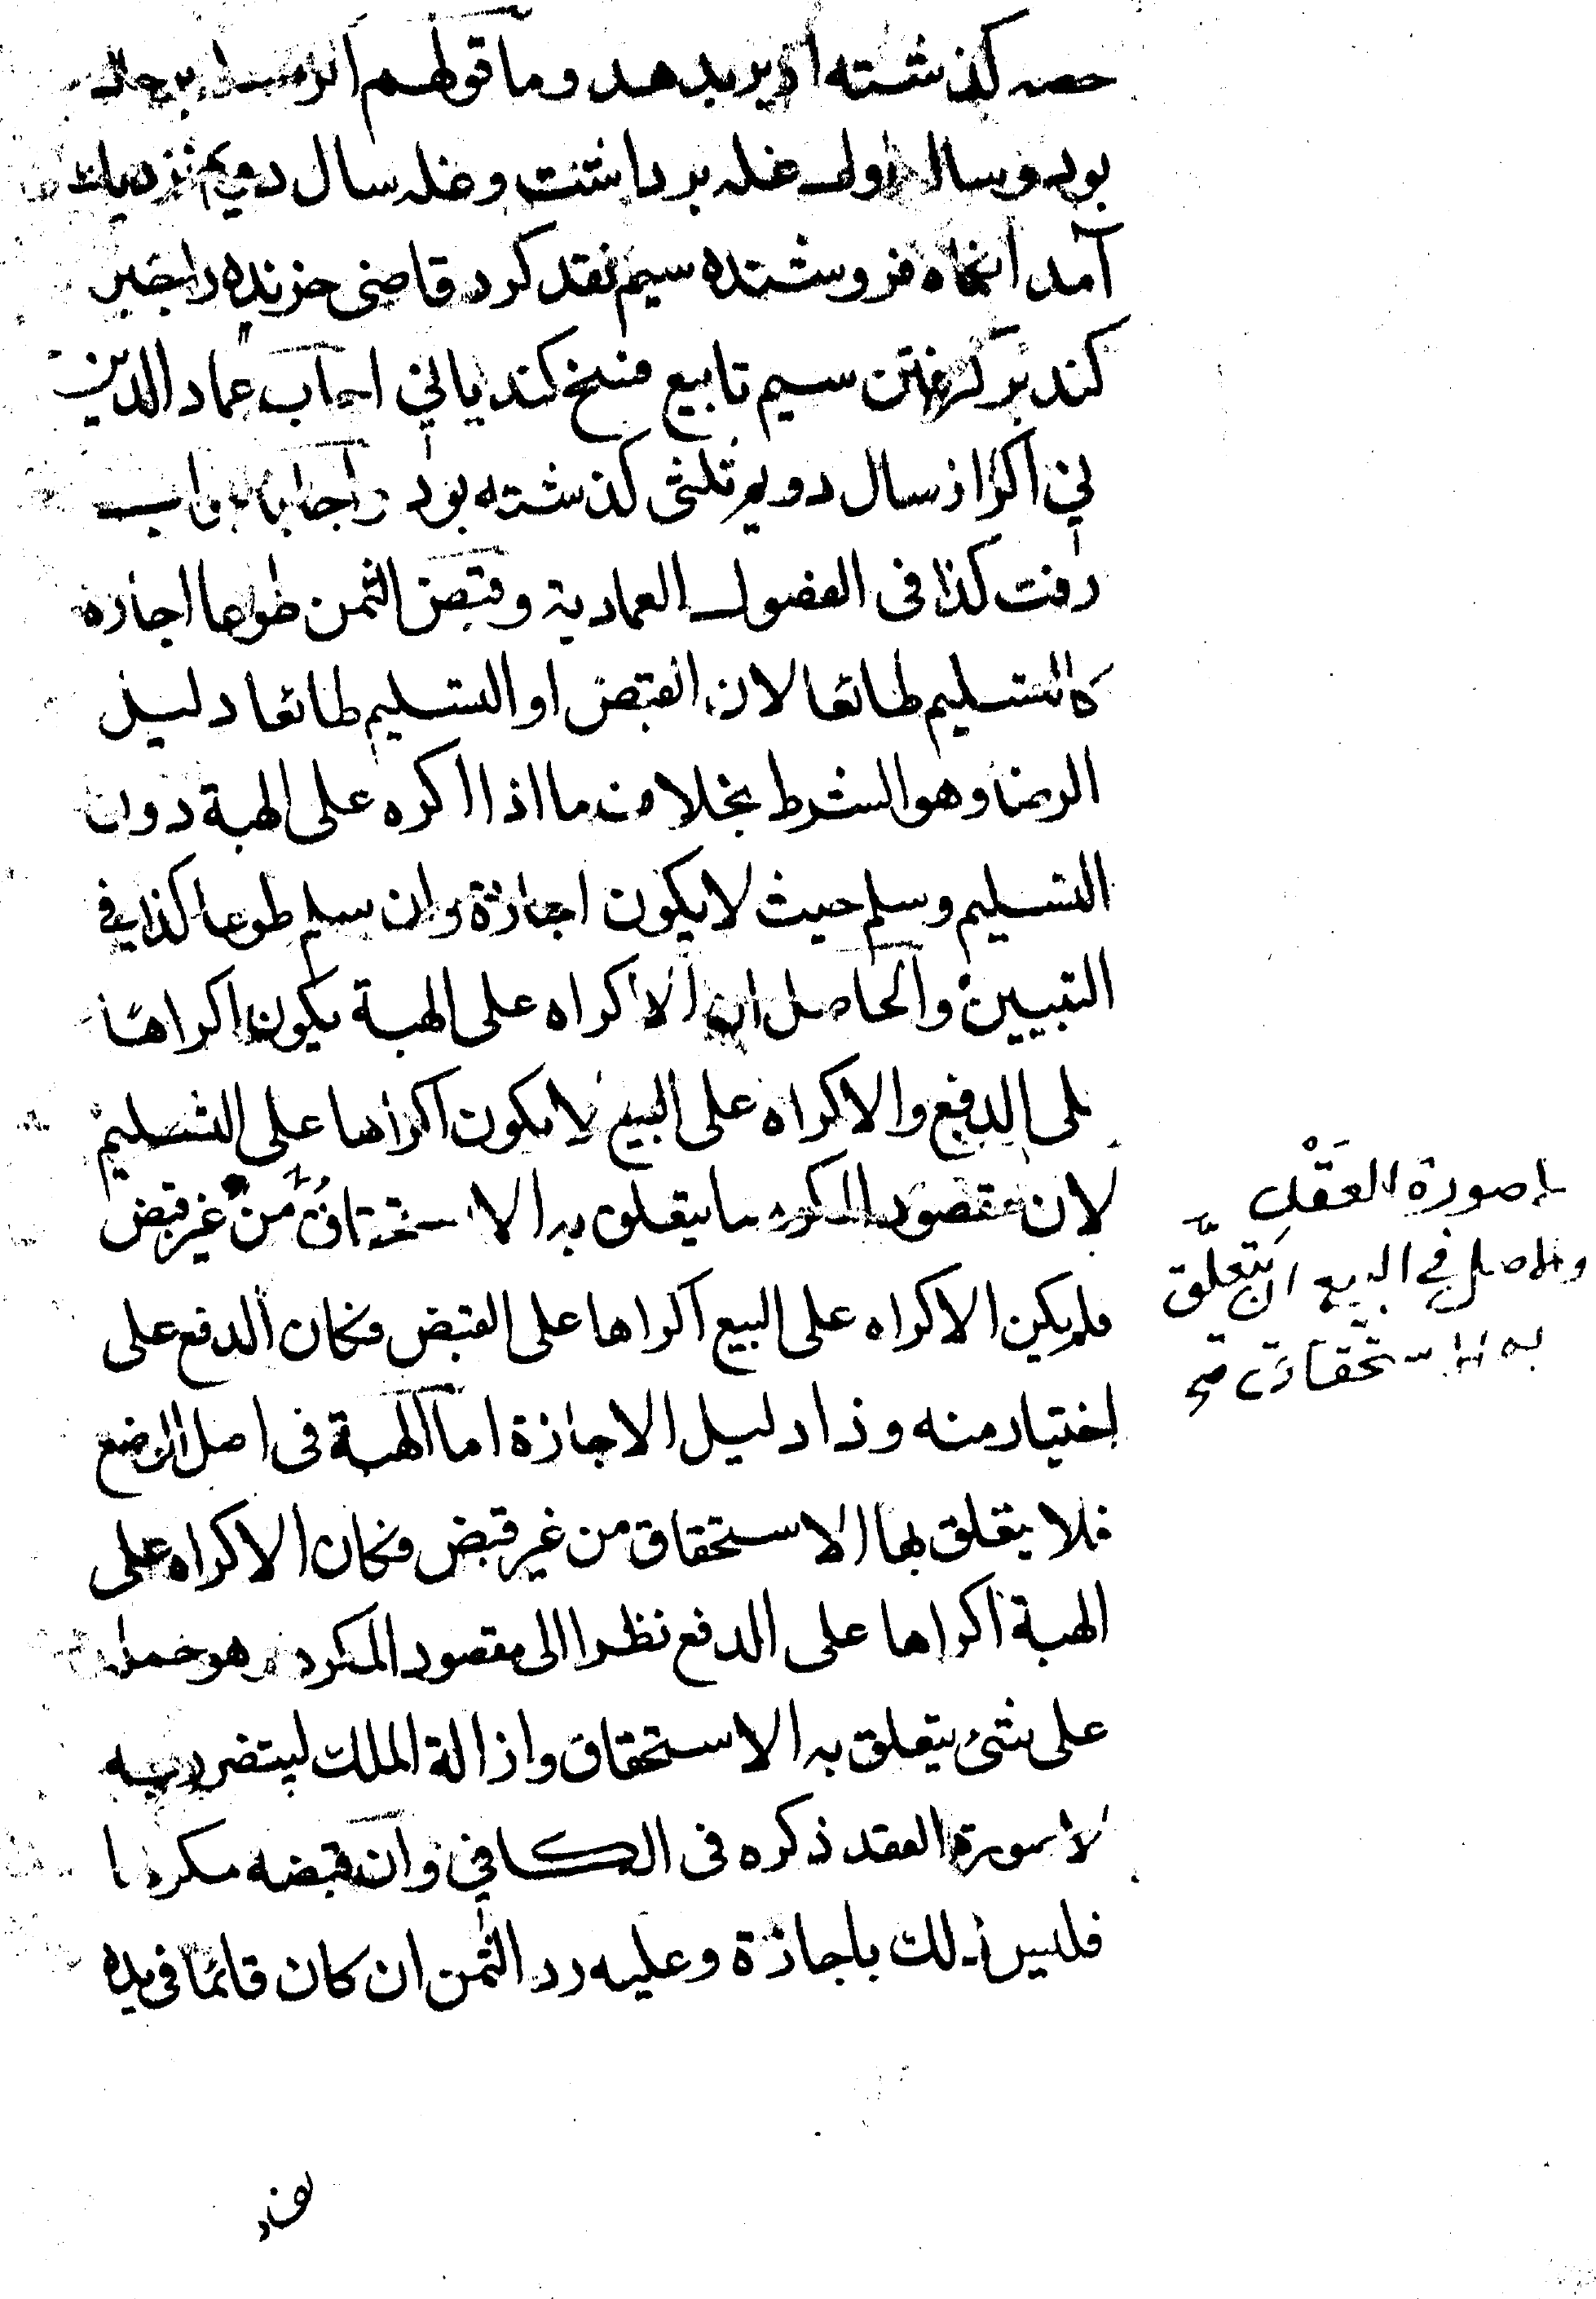 حصه كذشته اديربدهد وما قولهم
بود وسال اول غله برداشت وغله سال دويم نزديك
آمد انكاه فروشنده سيم نقد كرد قاضى خرنده را جبر
كند بر كرفتن سيم تا بيع فسخ كند يا نى اجاب عماد الدين
نى اكر از سال دويم ثلثى كذشته بود
رفت كذا فى الفصول العمادية وقبض الثمن طوعا اجازة
كالتسليم طائعا لان القبض او التسليم طائعا دليل
الرضا وهو الشرط بخلاف ما اذا اكره على الهبة دون
التسليم وسلم حيث لا يكون اجازة وان سلم طوعا كذا في
التبيين والحاصل ان الاكراه على الهبة يكون اكراها
على الدفع والاكراه على البيع لا يكون اكراها على التسليم
لان مقصود المكره ما يتعلق به الاستحقاق من غير قبض
فلم يكن الاكراه على البيع اكراها على القبض فكان الدفع على
اختيار منه وذا دليل الاجازة اما الهبة فى اصل الوضع
فلا يتعلق بها الاستحقاق من غير قبض فكان الاكراه على
الهبة اكراها على الدفع نظرا الى مقصود المكره وهو حمله
على شئ يتعلق به الاستحقاق وازالة الملك ليتضرر به
لا صورة العقد ذكره فى الكافي وان قبضه مكرها
فليس ذلك باجازة وعليه رد الثمن ان كان قائما فى يده
لا صورة العقد
والاصل في البيع ان يتعلق
به الاستحقاق صح